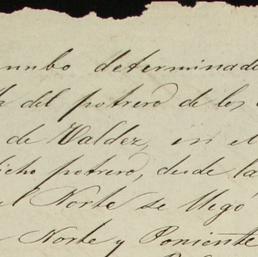 rumbo determinado
del potrero de los
de Valdez, en el
dicho potrero, desde la
el Norte se llegó
Norte y Poniente